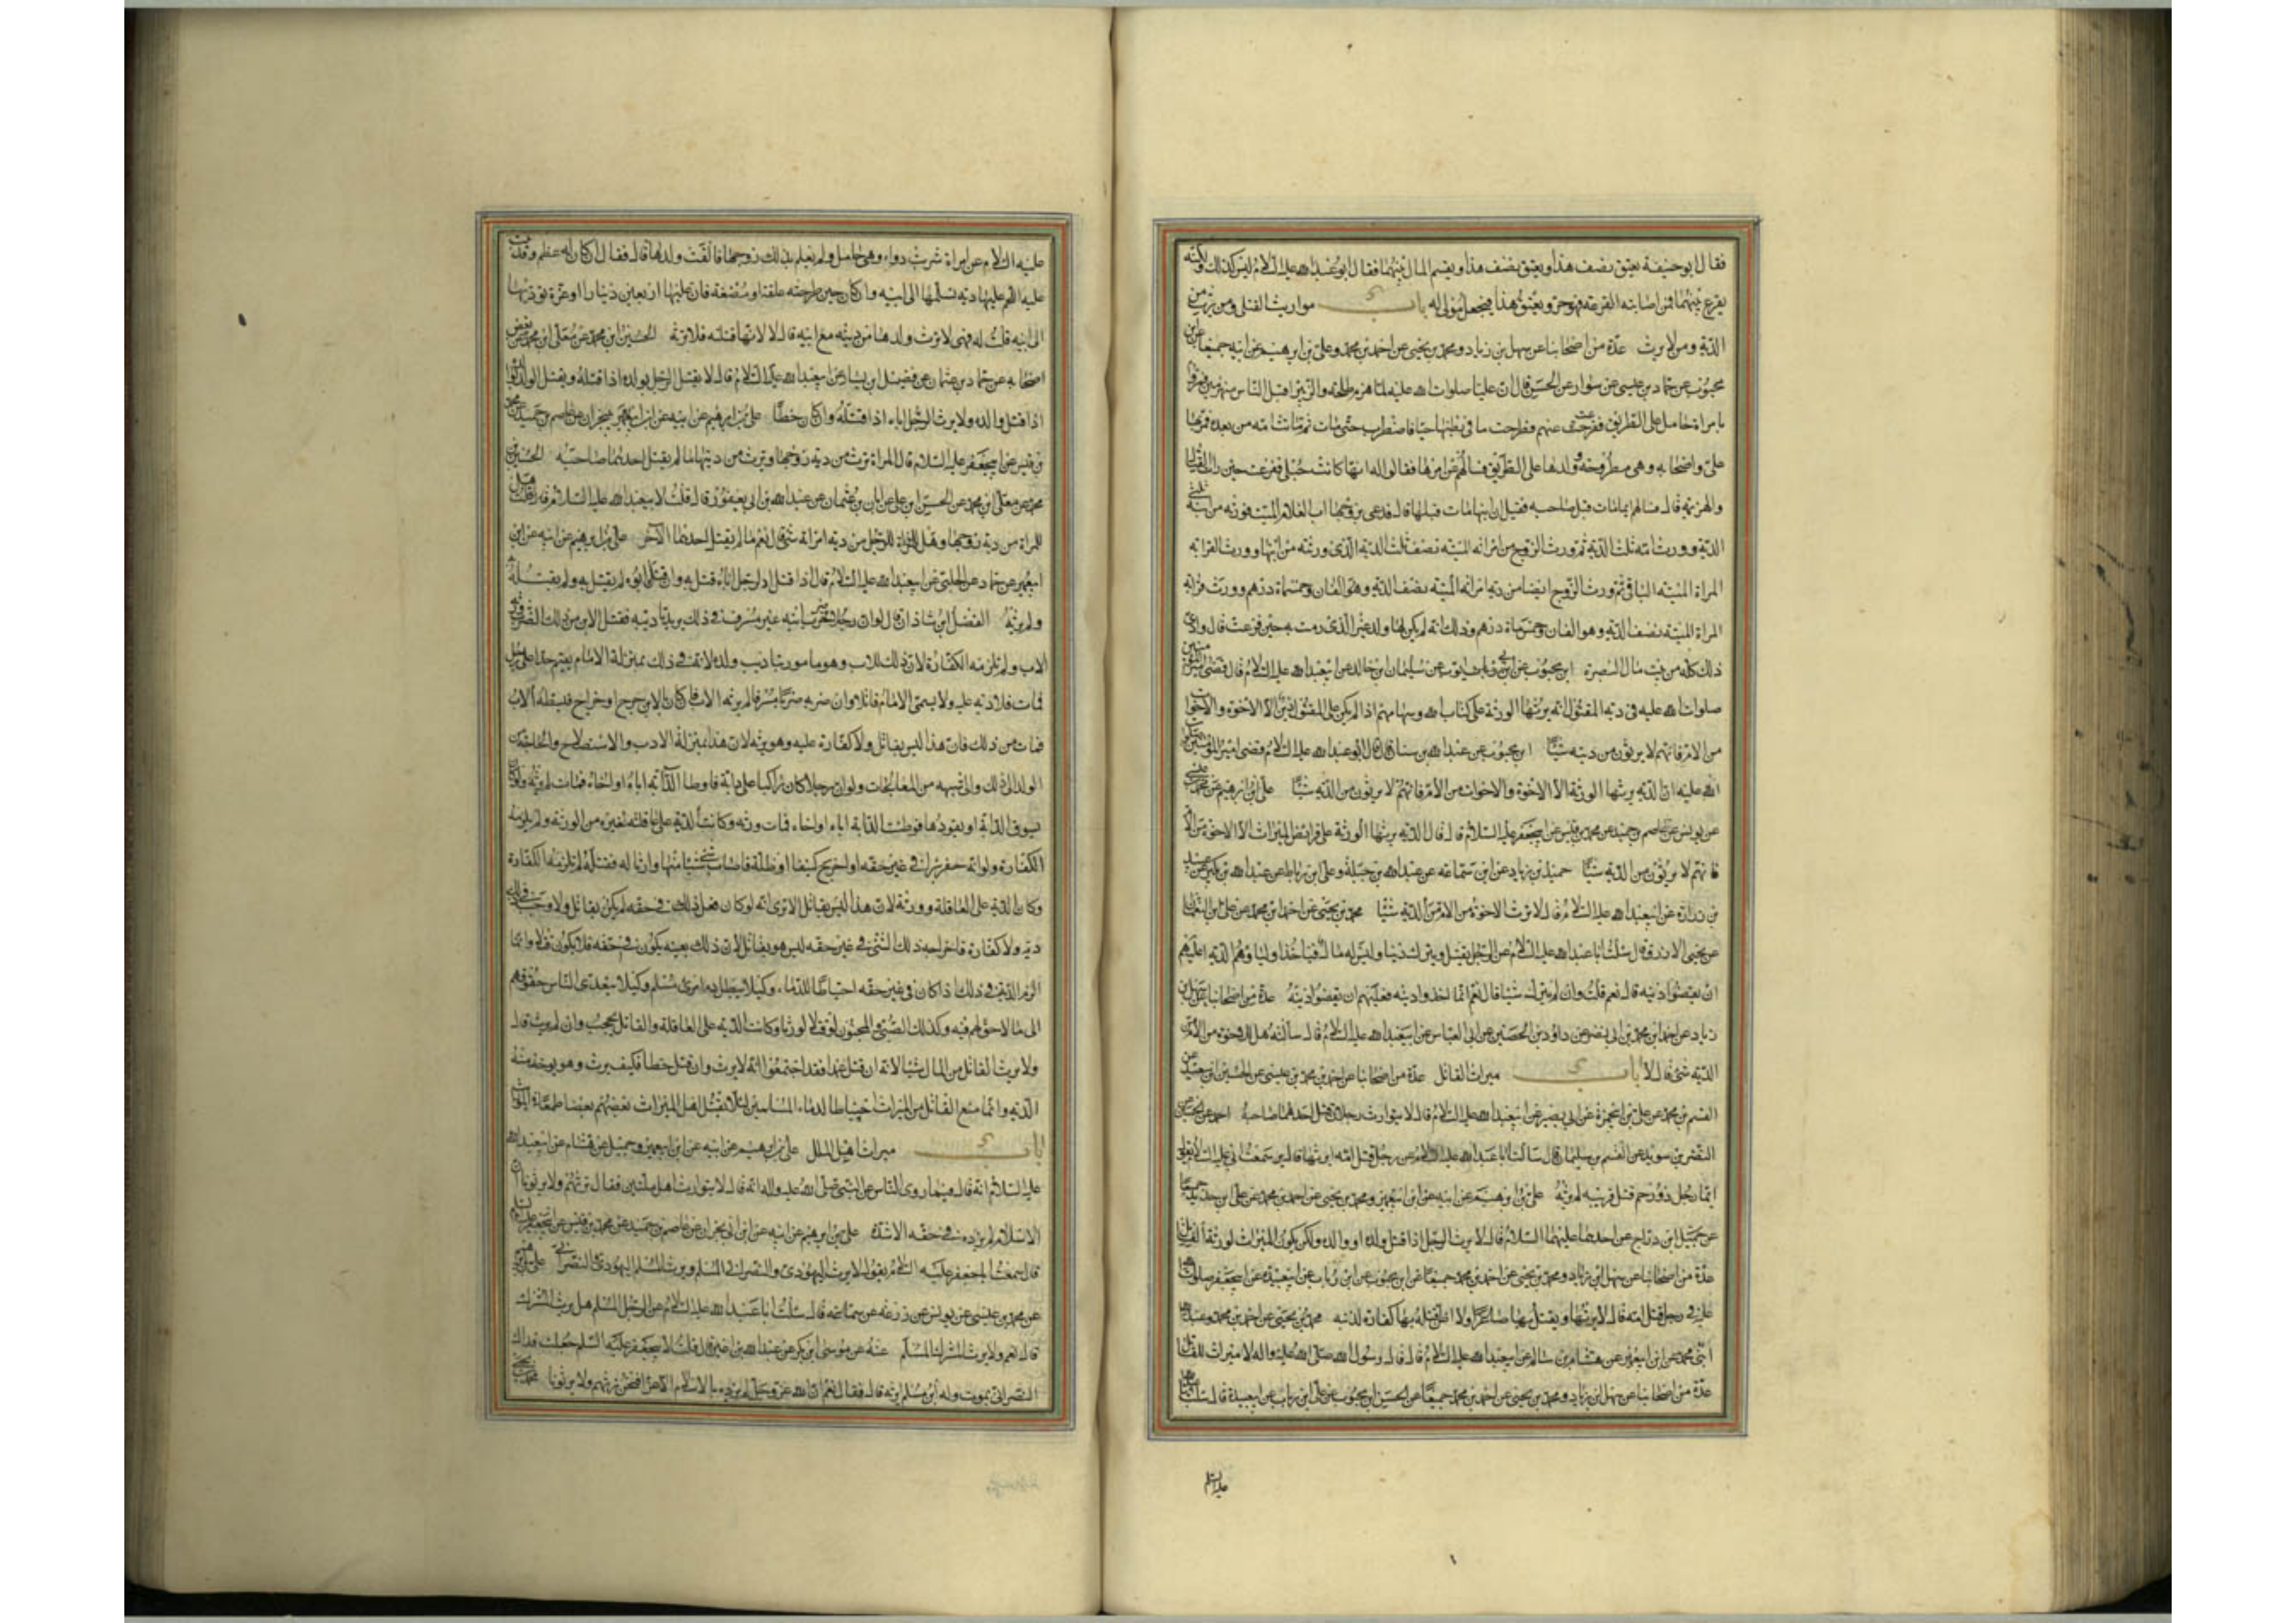 فقال ابو حنيفة يعتق نصف هذا ويعتق نصف هذا ويقسم المال بينهما فقال ابو عبد الله عليه السلام ليس كذلك ولكنه
يقرع بينهما فمن اصابته القرعة فهو حر ويعتق هذا فيجعل مولى له باب مواريث القتلى ومن يرث من
الدية ومن لا يرث عدة من اصحابنا عن سهل بن زياد ومحمد بن يحيى عن احمد بن محمد وعلي بن ابرهيم عن ابيه جميعا عن ابن
محبوب عن حماد بن عيسى عن سوار عن الحسن قال ان عليا صلوات الله عليه لما هزم طلحة والزبير اقبل الناس منهزمين فمروا
بامراة حامل على الطريق ففزعت منهم فطرحت ما في بطنها حيا فاضطرب حتى مات ثم ماتت امه من بعده فمر بها
علي واصحابه وهي مطروحة وولدها على الطريق فسالهم عن امرها فقالوا له انها كانت حبلى ففزعت حين رات القتال
والهزيمة قال فسالهم ايهما مات قبل صاحبه فقيل ان ابنها مات قبلها قال فدعى بزوجها اب الغلام الميت فورثه من ابنه ثلثي
الدية وورث امه ثلث الدية ثم ورث الزوج من امراته الميتة نصف ثلث الدية الذي ورثته من ابنها وورث قرابة
المراة الميتة الباقي ثم ورث الزوج ايضا من دية امراته الميتة نصف الدية وهو الفان وخمسماة درهم وورث قرابة
المراة الميتة نصف الدية وهو الفان وخمسماة درهم وذلك انه لم يكن لها ولد غير الذي رمت به حين فزعت قال وادى
ذلك كله من بيت مال البصرة ابن محبوب عن ابي ايوب عن سليمان ابن خالد عن ابي عبد الله عليه السلام قال قضى امير المؤمنين
صلوات الله عليه في دية المقتول انه يرثها الورثة على كتاب الله وسهامهم اذا لم يكن على المقتول دين الا الاخوة والاخوات
من الام فانهم لا يرثون من ديته شيئا ابن محبوب عن عبد الله بن سنان قال قال ابو عبد الله عليه السلام قضى امير المؤمنين صلوات
الله عليه ان الدية يرثها الورثة الا الاخوة والاخوات من الام فانهم لا يرثون من الدية شيئا علي ابن ابرهيم عن محمد بن عيسى
عن يونس عن عاصم بن حميد عن محمد بن قيس عن ابي جعفر عليه السلام قال قال الدية يرثها الورثة على فرائض الميراث الا الاخوة من الام
فانهم لا يرثون من الدية شيئا حميد بن زياد عن ابن سماعة عن عبد الله بن جبلة وعلي ابن رباط عن عبد الله بن بكير عن عبيد
بن زرارة عن ابي عبد الله عليه السلام قال لا يرث الاخوة من الام من الدية شيئا محمد بن يحيى عن احمد ابن محمد عن علي ابن النعمان
عن يحيى الازرق قال سئلت ابا عبد الله عليه السلام عن الرجل يقتل ويترك دينا وليس له مال فياخذ اوليائه الدية اعليهم
ان يقضوا دينه قال نعم قلت وان لم يترك شيئا قال نعم انما اخذوا ديته فعليهم ان يقضوا دينه عدة من اصحابنا عن سهل بن
زياد عن احمد ابن محمد بن ابي نصر عن داود بن الحصين عن ابي العباس عن ابي عبد الله عليه السلام قال سالته هل للاخوة من الام من
الدية شيء قال لا باب ميراث القاتل عدة من اصحابنا عن احمد بن محمد بن عيسى عن الحسين ابن سعيد عن
القسم بن محمد عن علي بن ابي حمزة عن ابي بصير عن ابي عبد الله عليه السلام قال لا يتوارث رجلان قتل احدهما صاحبه احمد عن الحسين عن
النضر بن سويد عن القسم بن سليمان قال سالت ابا عبد الله عليه السلام عن رجل قتل امه ايرثها قال سمعت ابي عليه السلام يقول
ايما رجل ذو رحم قتل قريبه لم يرثه علي بن ابرهيم عن ابيه عن ابن ابي عمير ومحمد بن يحيى عن احمد بن محمد عن علي بن حديد جميعا
عن جميل ابن دراج عن احدهما عليهما السلام قال لا يرث الرجل اذا قتل ولده او والده ولكن يكون الميراث لورثة القاتل
عدة من اصحابنا عن سهل ابن زياد ومحمد بن يحيى عن احمد بن محمد جميعا عن ابن محبوب عن ابن رئاب عن ابي عبيدة عن ابي جعفر صلوات الله
عليه في رجل قتل امه قال لا يرثها ويقتل بها صاغرا ولا اظن قتله بها كفارة لذنبه محمد بن يحيى عن احمد بن محمد وعبد الله
ابني محمد عن ابن ابي عمير عن هشام بن سالم عن ابي عبد الله عليه السلام قال قال رسول الله صلى الله عليه واله لا ميراث للقاتل
عدة من اصحابنا عن سهل ابن زياد ومحمد بن يحيى عن احمد بن محمد جميعا عن الحسن ابن محبوب عن علي ابن رئاب عن ابي عبيدة قال سئلت
عليه السلم
عليه السلام عن امراة شربت دواء وهي حامل ولم يعلم بذلك زوجها فالقت ولدها قال فقال ان كان له عظم وقد نبت
عليه اللحم عليها دية تسلمها الى ابيه وان كان حين طرحته علقة او مضغة فان عليها اربعين دينارا او غرة تؤديها
الى ابيه قلت له فهي لا ترث ولدها من ديته مع ابيه قال لا لانها قتلته فلا ترثه الحسين ابن محمد عن معلى ابن محمد عن بعض
اصحابه عن حماد بن عثمان عن فضيل ابن يسار عن ابي عبد الله عليه السلام قال لا يقتل الرجل بولده اذا قتله ويقتل الولد بوالده
اذا قتل والده ولا يرث الرجل اباه اذا قتله وان كان خطأ علي بن ابرهيم عن ابيه عن ابن ابي نجران عن عاصم بن حميد عن محمد
بن قيس عن ابي جعفر عليه السلام قال المراة ترث من دية زوجها ويرث من ديتها ما لم يقتل احدهما صاحبه الحسين بن
محمد عن معلى ابن محمد عن الحسن ابن علي عن ابان بن عثمان عن عبد الله بن ابي يعفور قال قلت لابي عبد الله عليه السلام هل
للمراة من دية زوجها وهل للرجل من دية امراته شيء قال نعم ما لم يقتل احدهما الآخر علي بن ابرهيم عن ابيه عن ابن
ابي عمير عن حماد عن الحلبي عن ابي عبد الله عليه السلام قال اذا قتل الرجل اباه قتل به وان قتله ابوه لم يقتل به ولم يقتله
ولم يرثه الفضل ابن شاذان قال لو ان رجلا ضرب ابنه غير مسرف في ذلك يريد تاديبه فقتل الابن من ذلك الضرب ورثه
الاب ولم تلزمه الكفارة لان ذلك للاب وهو مامور بتاديب ولده لانه في ذلك بمنزلة الامام يقيم حدا على رجل
فمات فلا دية عليه ولا يسمى الامام قاتلا وان ضربه ضربا مسرفا لم يرثه الاب فان كان بالابن جرح او خراج فبطه الاب
فمات من ذلك فان هذا ليس بقاتل ولا كفارة عليه وهو يرثه لان هذا بمنزلة الادب والاستصلاح والحاجة من
الولد الى ذلك والى شبهه من المعالجات ولو ان رجلا كان راكبا على دابة فاوطات الدابة اباه او اخاه فمات لم يرثه ولو كان
يسوق الدابة او يقودها فوطئت الدابة اباه او اخاه فمات ورثه وكانت الدية على عاقلته لغيره من الورثة ولم يلزمه
الكفارة ولو انه حفر بئرا في غير حقه او اخرج كنيفا او ظلة فاصاب شيء منها وارثا له فقتله لم تلزمه الكفارة
وكان الدية على العاقلة وورثه لان هذا ليس بقاتل الا ترى انه لو كان فعل ذلك في حقه لم يكن بقاتل ولا وجب في ذلك
دية ولا كفارة فاخراجه ذلك الشيء في غير حقه ليس هو بقاتل لان ذلك بعينه يكون في حقه فلا يكون قتلا وانما
الزم الدية في ذلك اذا كان في غير حقه احتياطا للدماء وكيلا يبطل دم امرئ مسلم وكيلا يتعدى الناس حقوقهم
الى ما لا حق لهم فيه وكذلك الصبي والمجنون لو قتلا لورثا وكانت الدية على العاقلة والقاتل يحجب وان لم يرث قال
ولا يرث القاتل من المال شيئا لانه ان قتل عمدا فقد اجتمعوا انه لا يرث وان قتل خطأ فكيف يرث وهو يوخذ منه
الدية وانما منع القاتل من الميراث احتياطا لدماء المسلمين لئلا يقتل اهل الميراث بعضهم بعضا طمعا في المواريث
باب ميراث اهل الملل علي بن ابرهيم عن ابيه عن ابن ابي عمير وجميل عن هشام عن ابي عبد الله
عليه السلام انه قال فيما روى الناس عن النبي صلى الله عليه واله انه قال لا يتوارث اهل ملتين فقال نرثهم ولا يرثونا ان
الاسلام لم يزده في حقه الا شدة علي بن ابرهيم عن ابيه عن ابن ابي نجران عن عاصم بن حميد عن محمد بن قيس عن ابي جعفر عليه السلام
قال سمعت ابا جعفر عليه السلام يقول لا يرث اليهودي والنصراني المسلم ويرث المسلم اليهودي والنصراني علي بن ابرهيم
عن محمد بن عيسى عن يونس عن زرعة عن سماعة قال سئلت ابا عبد الله عليه السلام عن الرجل المسلم هل يرث المشرك
قال نعم ولا يرث المشرك المسلم عنه عن موسى ابن بكر عن عبد الله بن اعين قال قلت لابي جعفر عليه السلم جعلت فداك
النصراني يموت وله ابن مسلم ايرثه قال فقال نعم ان الله عز وجل لم يزده بالاسلام الا عزا فنحن نرثهم ولا يرثونا محمد بن يحيى